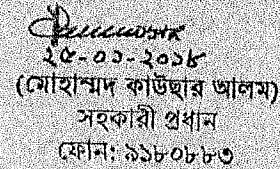 ২৫-০১-২০১৮
(মোহাম্মদ কাউছার আলম)
সহকারী প্রধান
ফোন: ৯১৮০৮৮৩